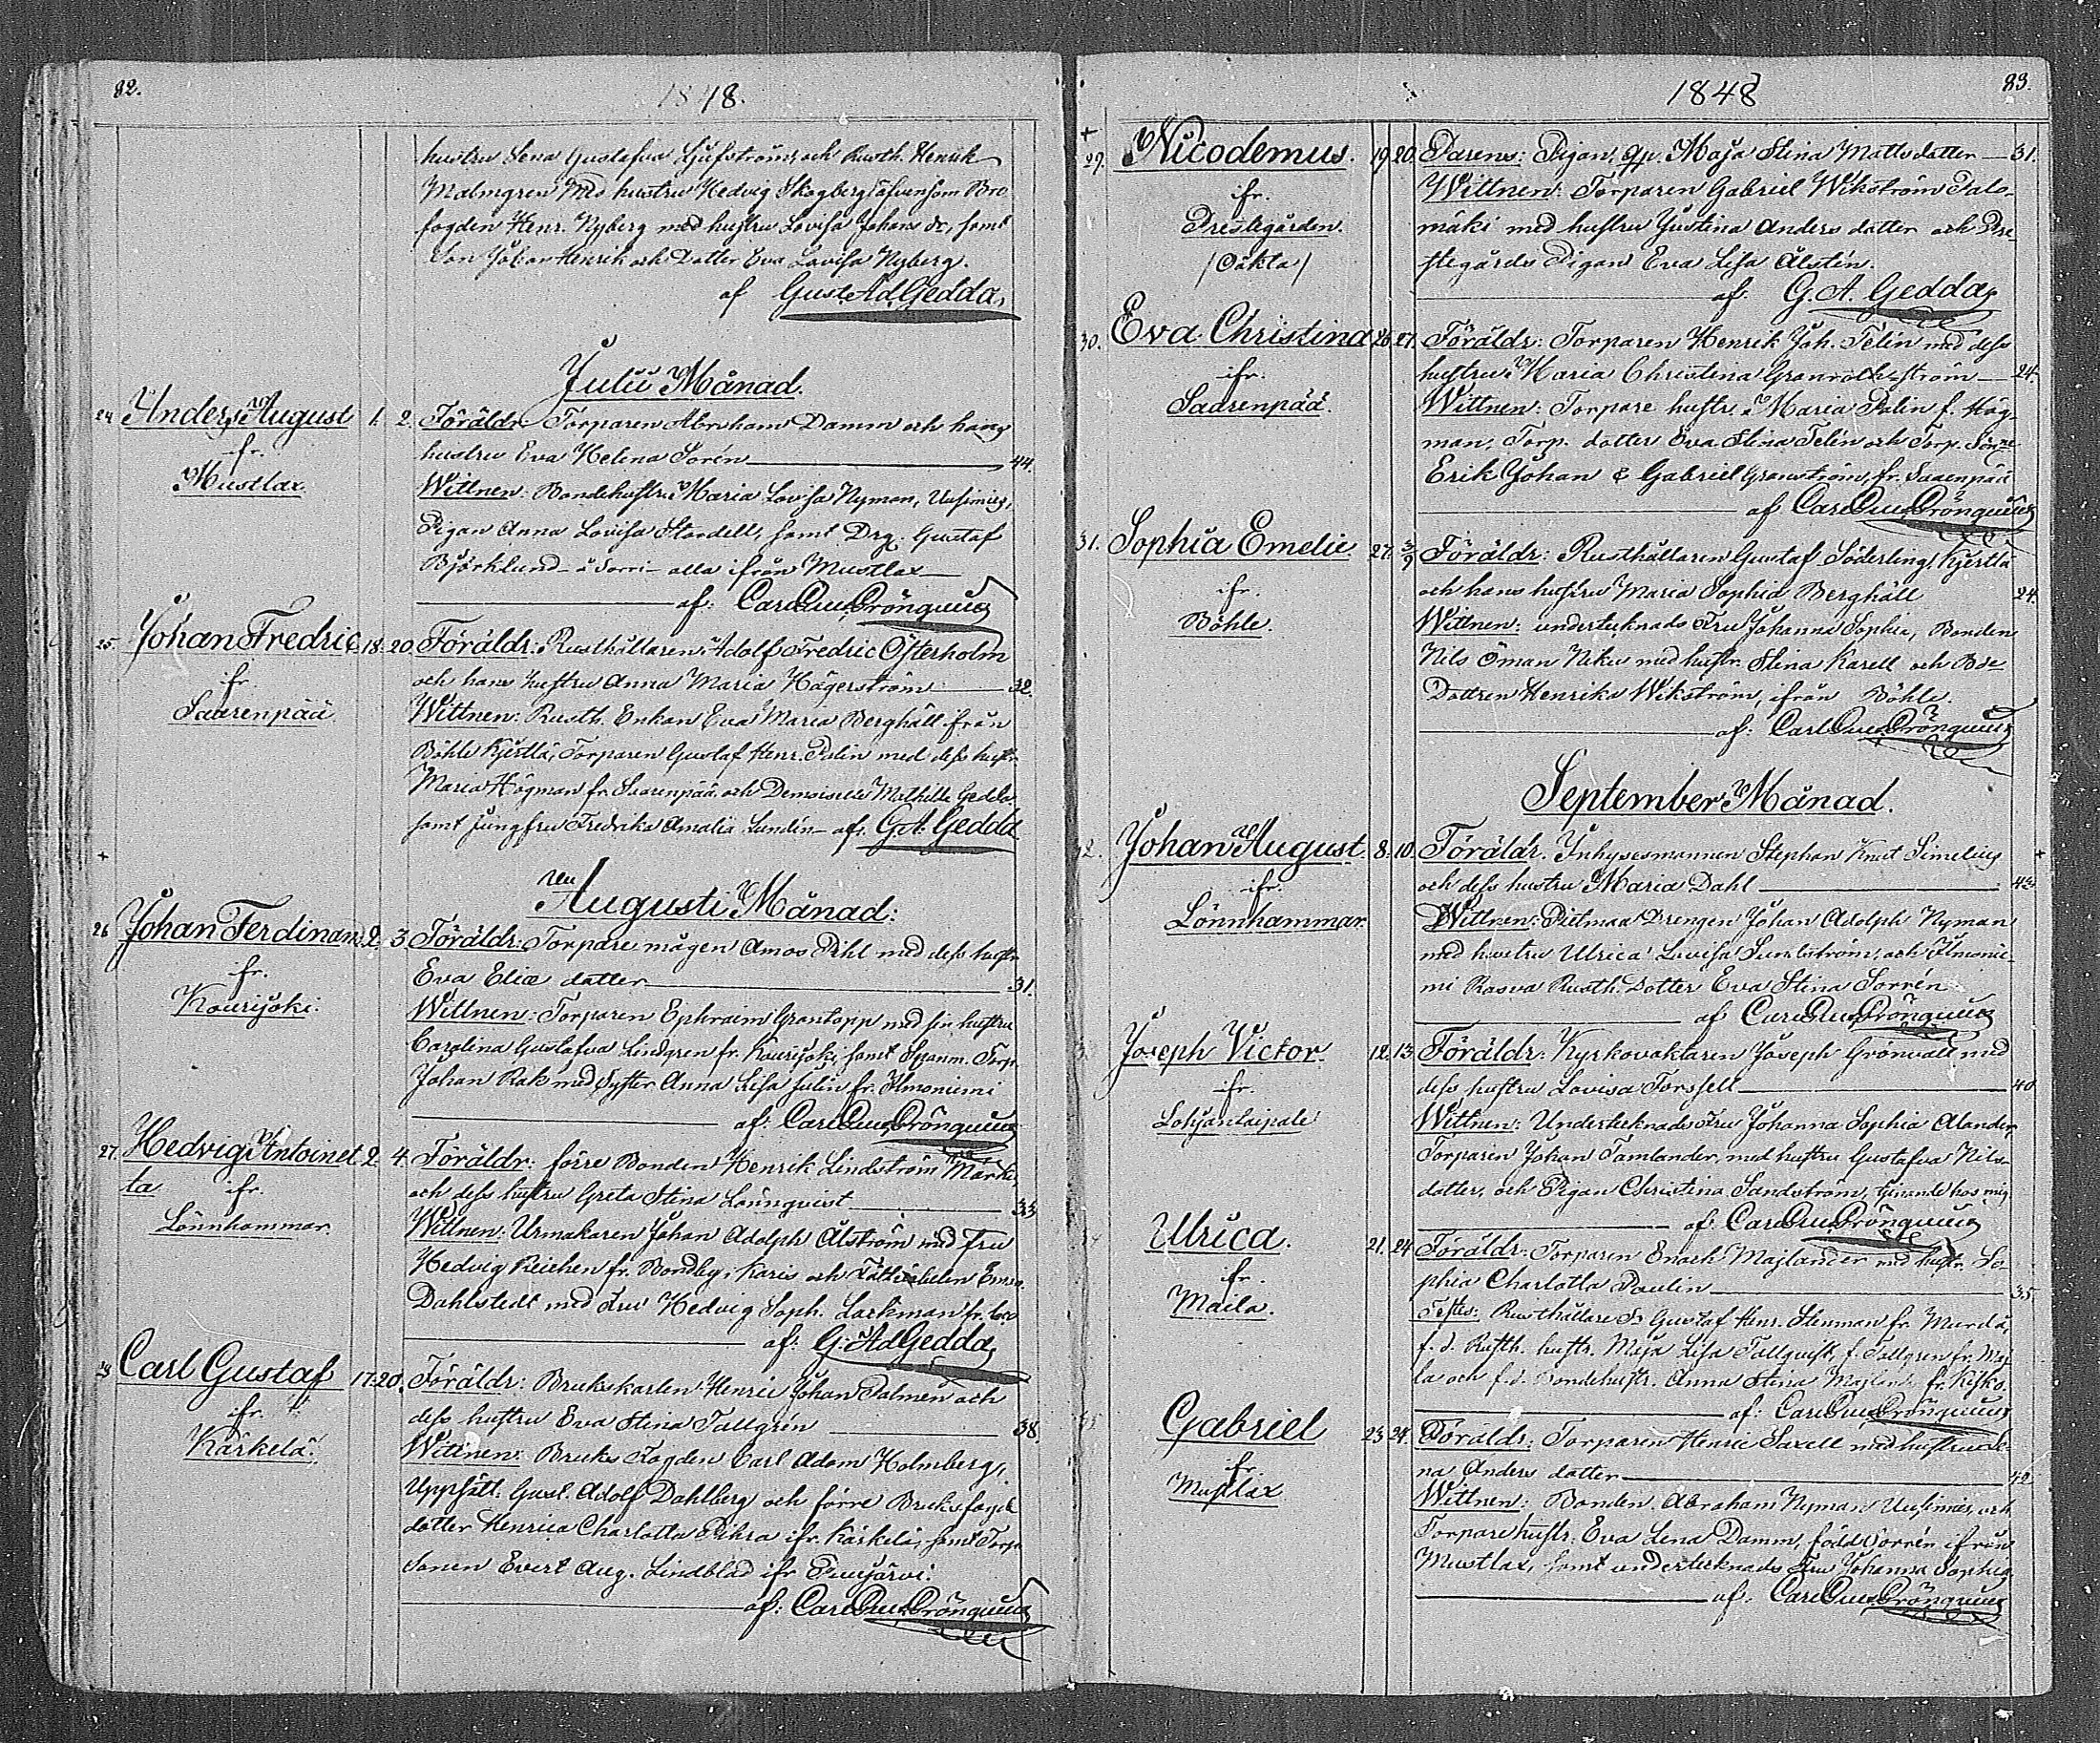 82.
1848.
hustru Lena Gustafva Ljufström, och Rusth. Henrik
Malmgren Med hustru Hedvig Skogberg, äfvensom Bro
fogden Henr. Nyberg med hustru Lovisa Johans dr, samt
Son Johan Henrik och Dotter Eva Lovisa Nyberg.
af Gust Ad Gedda
Julii Månad.
24 Anders August 1. 2. Föräldr. Torparen Abraham Damm och hans
ifr. hustru Eva Helena Sorén 44.
Mustlax. Wittnen: Bondehustru Maria Lovisa Nyman, Uusimies,
Pigan Anna Lovisa Standell, samt Drg. Gustaf
Björklund å Sorri alla ifrån Mustlax
af: Carl Grönqvist
25. Johan Fredric 18. 20. Föräldr: Rusthållaren Adolf Fredric Österholm
ifr. och hans hustru Anna Maria Hägerström 32.
Saarenpää Wittnen: Rusth. Enkan Eva Maria Berghäll ifrån
Böhle Kjertlä, Torparen Gustaf Henr. Palin med dess hustr.
Maria Högman fr. Saarenpää och Demoiselle Mathilda Gedda
samt Jungfru Fredrika Amalia Lundén af: G.A. Gedda
+
Augusti Månad:
26 Johan Ferdinand 2. 3 Föräldr: Torpare mågen Amos Pihl med dess hustr
ifr. Eva Eliæ dotter 31.
Kourijoki. Wittnen: Torparen Ephraim Grantopp med sin hustru
Carolina Gustafva Lindgren fr. Kourijoki, samt Spanm. Torp.
Johan Rak med Syster Anna Lisa fr. Ilmoniemi
af: Carl Grönqvist
27. Hedvig Antoinet 2. 4. Föräldr: förre Bonden Henrik Lindström
ta ifr. och dess hustru Greta Stina Lönnqvist 33
Lönnhammar. Wittnen: Urmakaren Johan Adolph Alström med Fru
Hedvig Reichen fr. Bondby, Karis och
Dahlstedt med Fru Hedvig Soph. Lackman fr.
af: G. Ad Gedda
Carl Gustaf 17. 20. Föräldr: Brukskarlen Henric Johan Palmen och
ifr. dess hustru Eva Stina Tallgrén 38.
Kärkelä. Wittnen: Bruks Fogden Carl Adam Holmberg,
Uppsätt. Gust. Adolf Dahlberg och förre Bruksfogde
dotter Henrica Charlotta ifr. Kärkelä, samt Torp.
Sonen Evert Aug. Lindblad ifr
af: Carl Grönqvist
83.
1848
+
29. Nicodemus. 19 20. Parens: Pigan, Maja Stina Mattsdotter 31.
ifr. Wittnen: Torparen Gabriel Wikström Palo-
Prestegården. mäki med hustru Justina Anders dotter och Pre-
/Oäkta/ stegårds Pigan Eva Lisa Alstén.
af: G. A. Gedda
30. Eva Christina 26 27. Föräldr: Torparen Henrik Joh. Telin med dess
ifr. hustru Maria Christina Granroth-ström 24.
Saarenpää. Wittnen: Torpare hustr. Maria Palin f. Hög-
man, Torp. dotter Eva Stina Telin och Torp. Sön.
Erik Johan & Gabriel Granström, fr. Saarenpää
af Carl Grönqvist
31. Sophia Emelie 27. 3/9 Föräldr: Rusthållaren Gustaf Söderling, Kjertlä
ifr. och hans hustru Maria Sophia Berghäll 24.
Böhle. Wittnen: undertecknads Fru Johanna Sophia, Bonden
Nils Öman Nikus med hustr. Stina Karell och Bde
Dottren Henrika Wikström, ifrån Böhle.
af: Carl Grönqvist
September Månad.
Johan August 8. 10. Föräldr. Inhysesmannen Stephan Knut Simelius +
ifr. och dess hustru Maria Dahl
Lönnhammar. Wittnen: Drengen Johan Adolph Nyman
med hustru Ulrica Lovisa och Ilmonie-
mi Rasva Rusth. Dotter Eva Stina Sorrén
af Carl Grönqvist
Joseph Victor. 12. 13 Föräldr: Kyrkovaktaren Joseph Grönvall med
ifr. dess hustru Lovisa Forssell 40
Lohjantaipale Wittnen: Undertecknads Fru Johanna Sophia Alander,
Torparen Johan Tamlander, med hustru Gustafva Nils-
dotter, och Pigan Christina Sandström, tjenande hos mig
af Carl Grönqvist
Ulrica. 21. 24 Föräldr: Torparen Enoch Majlander med hustr. So-
ifr. phia Charlotta Paulin 35.
Maila. Testes: Rusthållare S Gustaf Henr. Stenman fr.
f. d. Rusth. hustr. Maja Lisa Tallqvist, f. Tallgren fr. Mai
la och f.d. Bondehustr. Anna Stina Majland fr. Kisko.
af: Carl Grönqvist
Gabriel 23. 24. Föräldr: Torparen Henric Saxell med hustru Le-
ifr. na Anders dotter 42
Mustlax Wittnen: Bonden Abraham Nyman Uusimies, och
Torpare hustr: Eva Lena Damm, född Sorrén ifrån
Mustlax, samt undertecknads Fru Johanna Sophia
af: Carl Grönqvist